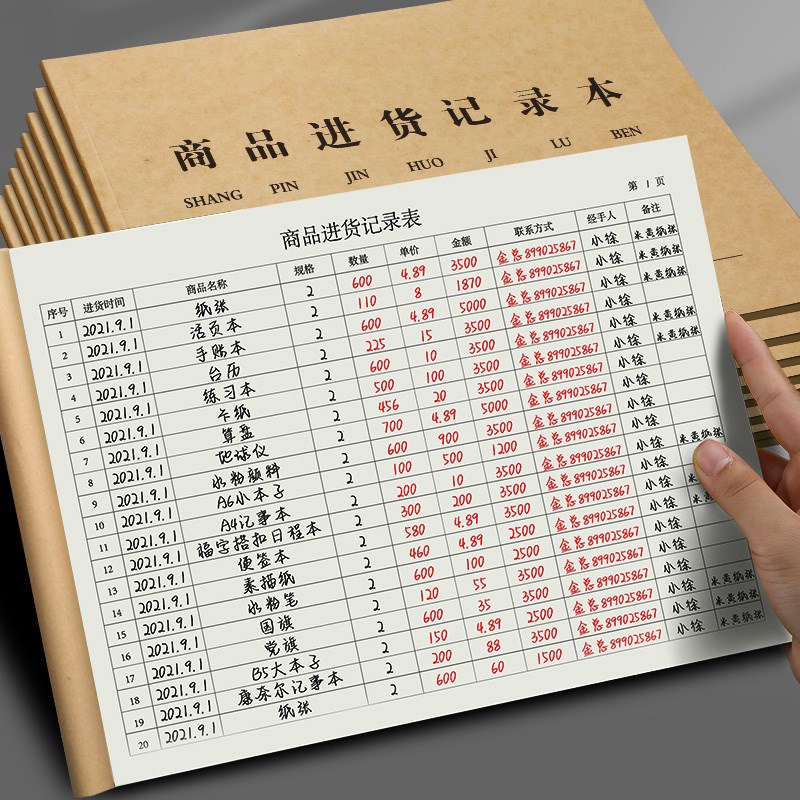 商品进货记录本
SHANG PIN JIN HUO JI LU BEN
第 1 页
商品进货记录表
序号 进货时间 商品名称 规格 数量 单价 金额 联系方式 经手人 备注
1 2021.9.1 纸张 2 600 4.89 3500 金总899025867 小徐 米黄纸张
2 2021.9.1 活页本 2 110 8 1870 金总899025867 小徐 米黄纸张
3 2021.9.1 手账本 2 600 4.89 5000 金总899025867 小徐 米黄纸张
4 2021.9.1 台历 2 225 15 3500 金总899025867 小徐
5 2021.9.1 练习本 2 600 10 3500 金总899025867 小徐 米黄纸张
6 2021.9.1 卡纸 2 500 100 3500 金总899025867 小徐 米黄纸张
7 2021.9.1 算盘 2 456 20 3500 金总899025867 小徐
8 2021.9.1 地球仪 2 700 4.89 5000 金总899025867 小徐
9 2021.9.1 水粉颜料 2 600 900 3500 金总899025867 小徐
10 2021.9.1 A6小本子 2 100 500 1200 金总899025867 小徐
11 2021.9.1 A4记事本 2 200 10 3500 金总899025867 小徐 米黄纸张
12 2021.9.1 福字搭扣日程本 2 300 200 3500 金总899025867 小徐
13 2021.9.1 便签本 2 580 4.89 3500 金总899025867 小徐
14 2021.9.1 素描纸 2 460 4.89 2500 金总899025867 小徐
15 2021.9.1 水粉笔 2 600 100 2500 金总899025867 小徐
16 2021.9.1 国旗 2 120 55 3500 金总899025867 小徐
17 2021.9.1 党旗 2 600 35 3500 金总899025867 小徐
18 2021.9.1 B5大本子 2 150 4.89 2500 金总899025867 小徐 米黄纸张
19 2021.9.1 康奈尔记事本 2 200 88 3500 金总899025867 小徐 米黄纸张
20 2021.9.1 纸张 2 600 60 1500 金总899025867 小徐 米黄纸张